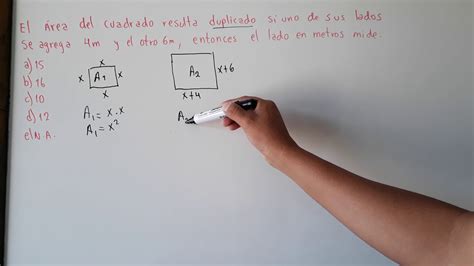 El área del cuadrado resulta duplicado si uno de sus lados
Se agrega 4m y el otro 6m, entonces el lado en metros mide:
a) 15
b) 16
c) 10
d) 12
e) N.A.
x
x A₁ x
x
A₁ = x . x
A₁ = x²
A₂ x+6
x+4
A₂